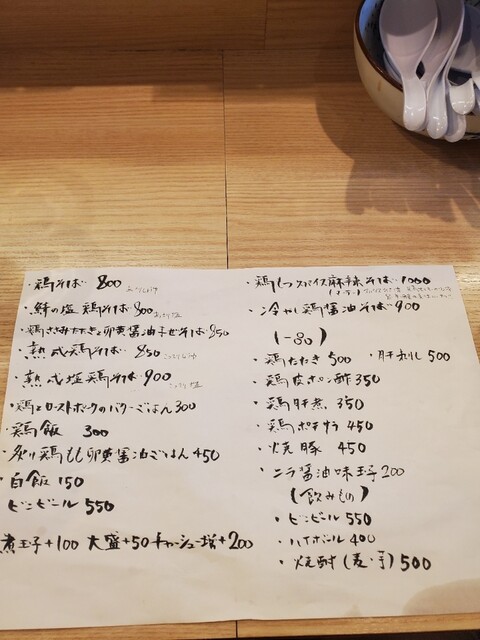 ・鶏そば 800
・鮮の塩鶏そば 800
・鶏ささみたたきと卵黄醤油まぜそば 850
・熟成鶏そば 850
・熟成塩鶏そば 900
・鶏とローストポークのバターごはん 300
・鶏飯 300
・炙り鶏もも卵黄醤油ごはん 450
・白飯 150
ビンビール 550
煮玉子+100 大盛+50 チャーシュー増+200
・鶏しつスパイス麻辣そば 1000
・冷やし鶏醤油そば 900
(一品)
・鶏たたき 500 ・肝刺し 500
・鶏皮ポン酢 350
・鶏肝煮 350
・鶏ポテサラ 450
・焼豚 450
・ニラ醤油味玉子 200
(飲みもの)
・ビンビール 550
・ハイボール 400
・焼酎(麦・芋) 500